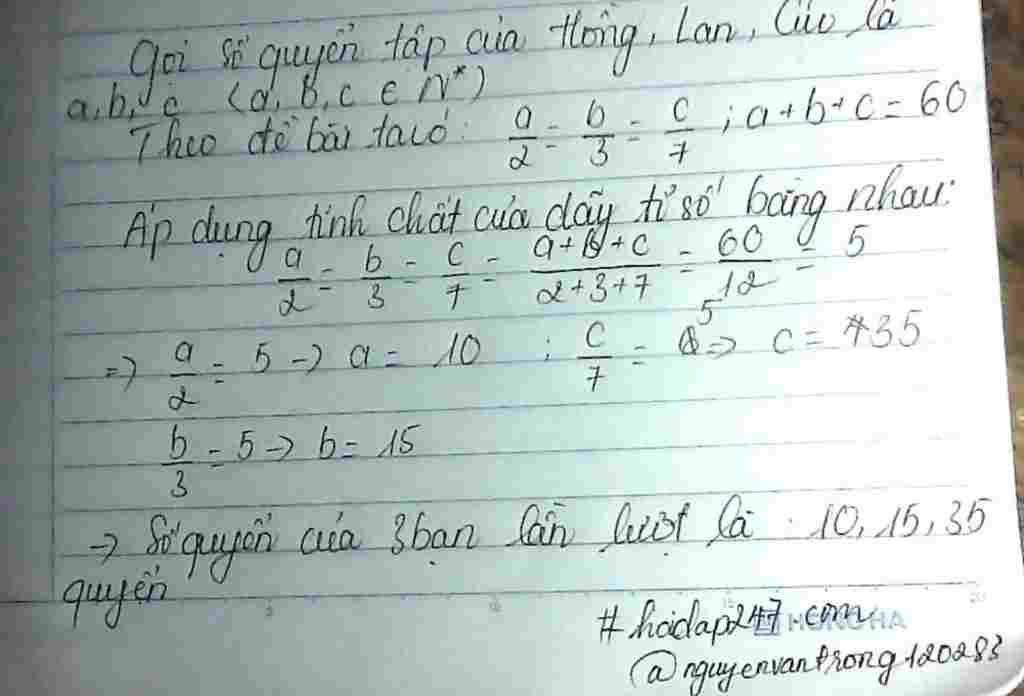 Gọi số quyển tập của Hồng, Lan, Cúc là
a, b, c (a, b, c ∈ N*)
Theo đề bài ta có: a/2 = b/3 = c/7 ; a + b + c = 60
Áp dụng tính chất của dãy tỉ số bằng nhau:
a/2 = b/3 = c/7 = a + b + c/2 + 3 + 7 = 60/12 = 5
=> a/2 = 5 -> a = 10 ; c/7 = 5 => c = 35
b/3 = 5 -> b = 15
-> Số quyển của 3 bạn lần lượt là : 10, 15, 35
quyển
5 10 15 20
HONG HA
#hoidap247.com
@nguyenvantrong120283